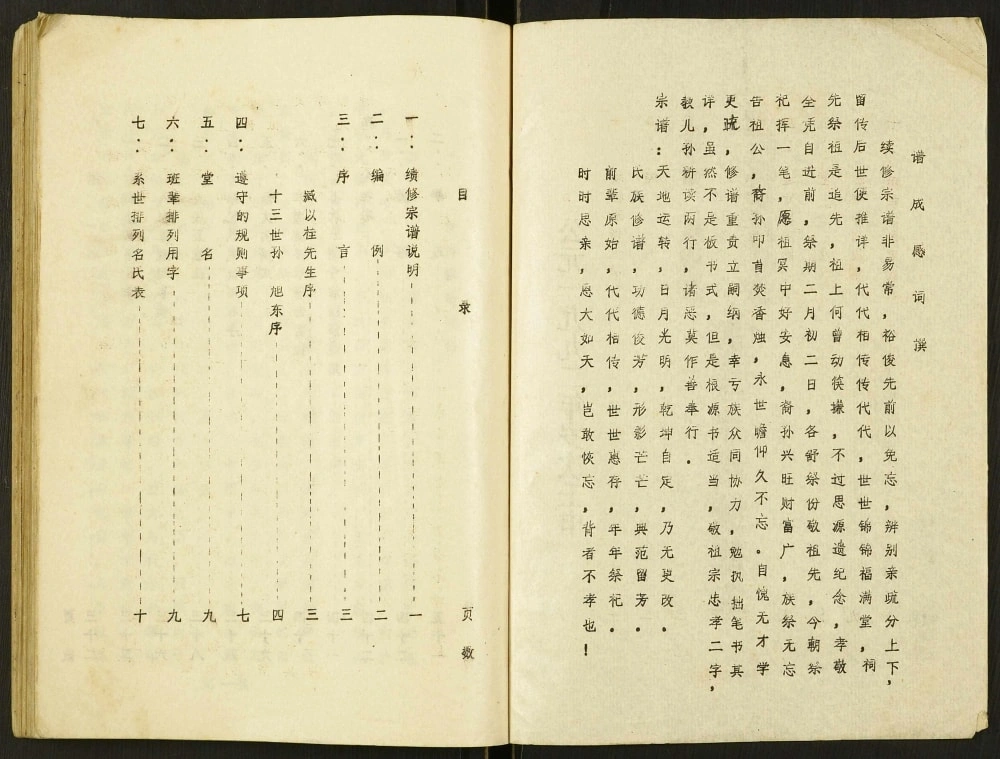 谱成感词撰
续修宗谱非易常，裕俊先前以免忘，辨别亲疏分上下，
留传后世便推详，代代相传传代代，世世锦锦福满堂，祠
先祭祖是追先，祖上何曾动筷攘，不过思源遗纪念，孝敬
全凭自进前，祭期二月初二日，各舒祭份敬祖先，今朝祭
祀挥一笔，愿祖冥中好安息，裔孙兴旺财富广，族祭无忘
告祖公，裔孙叩首焚香烛，永世瞻仰久不忘。自愧无才学
更疏，修谱重责立嗣纳，幸亏族众同协力，勉执拙笔书其
详，虽然不是板书式，但是根源书适当，敬祖宗忠孝二字，
教儿孙耕读两行，诸恶莫作善奉行．
宗谱：天地运转，日月光明，乾坤自定，乃无更改．
民族修谱，功德俊芳，形影芒芒，典范留芳．
前辈原始，代代相传，世世惠存，年年祭祀．
时时思亲，恩大如天，岂敢恢忘，背者不孝也！
目录 页数
一：续修宗谱说明 一
二：编例 二
三：序言 三
臧以柱先生序 三
十三世孙 旭东序 四
四：遵守的规则事项 七
五：堂名 九
六：班辈排列用字 九
七：系世排列名氏表 十